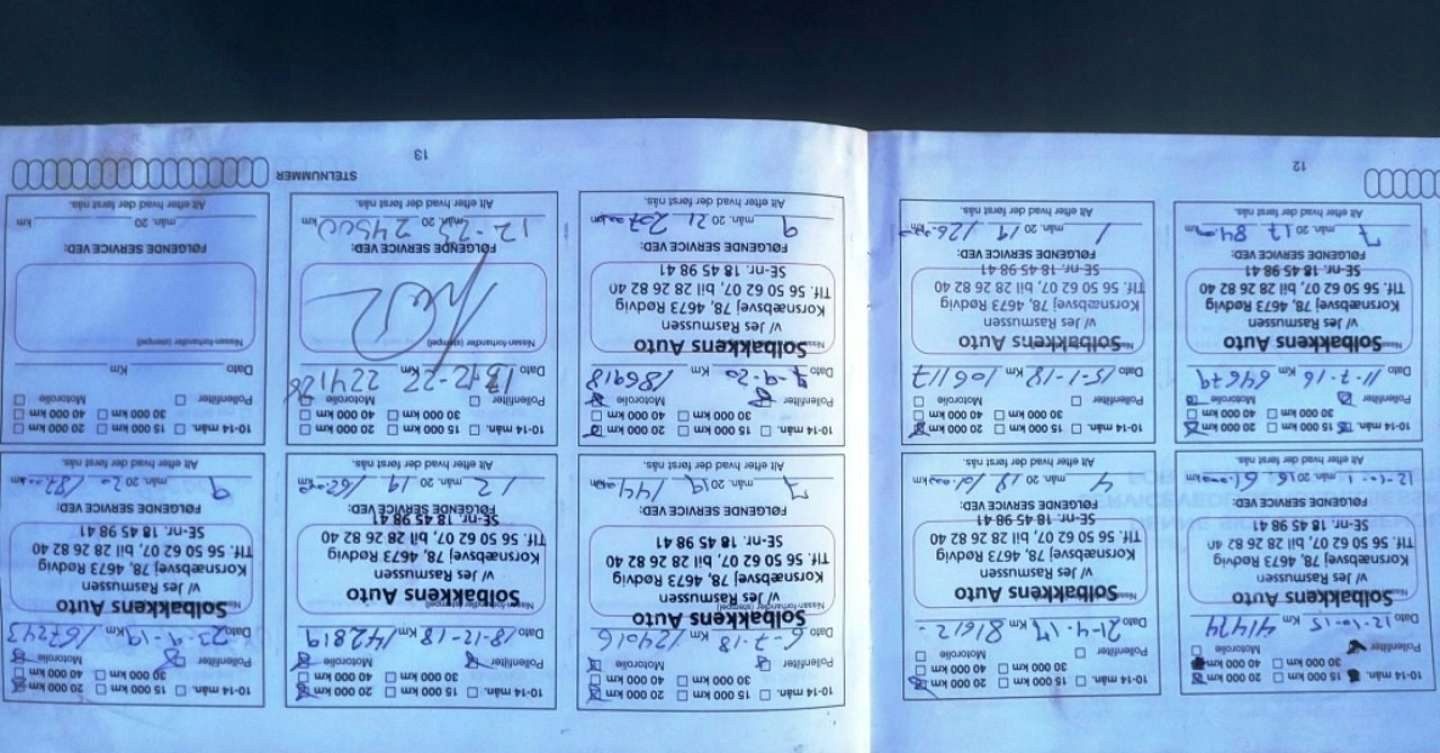 10-14 mån. 15 000 km 20 000 km
30 000 km 40 000 km
Pollenfilter Motorolie
Dato 12-10-15 Km 41474
Solbakkens Auto
v/ Jes Rasmussen
Kornsæbsvej 78, 4673 Rødvig
Tlf. 56 50 62 07, bil 28 26 82 40
SE-nr. 18 45 98 41
FØLGENDE SERVICE VED:
mån. 2016 61.000 km
Alt efter hvad der først nås.
10-14 mån. 15 000 km 20 000 km
30 000 km 40 000 km
Pollenfilter Motorolie
Dato 21-4-17 Km 81612
Solbakkens Auto
v/ Jes Rasmussen
Kornsæbsvej 78, 4673 Rødvig
Tlf. 56 50 62 07, bil 28 26 82 40
SE-nr. 18 45 98 41
FØLGENDE SERVICE VED:
4 mån. 20 18 101.000 km
Alt efter hvad der først nås.
10-14 mån. 15 000 km 20 000 km
30 000 km 40 000 km
Pollenfilter Motorolie
Dato 11-7-16 Km 64679
Solbakkens Auto
v/ Jes Rasmussen
Kornsæbsvej 78, 4673 Rødvig
Tlf. 56 50 62 07, bil 28 26 82 40
SE-nr. 18 45 98 41
FØLGENDE SERVICE VED:
7 mån. 20 17 84. km
Alt efter hvad der først nås.
10-14 mån. 15 000 km 20 000 km
30 000 km 40 000 km
Pollenfilter Motorolie
Dato 15-1-18 Km 106117
Solbakkens Auto
v/ Jes Rasmussen
Kornsæbsvej 78, 4673 Rødvig
Tlf. 56 50 62 07, bil 28 26 82 40
SE-nr. 18 45 98 41
FØLGENDE SERVICE VED:
1 mån. 20 19 126. km
Alt efter hvad der først nås.
12
10-14 mån. 15 000 km 20 000 km
30 000 km 40 000 km
Pollenfilter Motorolie
Dato 6-7-18 Km 124016
Nissan-forhandler (stempel)
Solbakkens Auto
v/ Jes Rasmussen
Kornsæbsvej 78, 4673 Rødvig
Tlf. 56 50 62 07, bil 28 26 82 40
SE-nr. 18 45 98 41
FØLGENDE SERVICE VED:
7 mån. 2019 144 km
Alt efter hvad der først nås.
10-14 mån. 15 000 km 20 000 km
30 000 km 40 000 km
Pollenfilter Motorolie
Dato 18-12-18 Km 142819
Nissan-forhandler (stempel)
Solbakkens Auto
v/ Jes Rasmussen
Kornsæbsvej 78, 4673 Rødvig
Tlf. 56 50 62 07, bil 28 26 82 40
SE-nr. 18 45 98 41
FØLGENDE SERVICE VED:
12 mån. 20 19 162.000 km
Alt efter hvad der først nås.
10-14 mån. 15 000 km 20 000 km
30 000 km 40 000 km
Pollenfilter Motorolie
Dato 23-9-19 Km 167243
Solbakkens Auto
v/ Jes Rasmussen
Kornsæbsvej 78, 4673 Rødvig
Tlf. 56 50 62 07, bil 28 26 82 40
SE-nr. 18 45 98 41
FØLGENDE SERVICE VED:
9 mån. 20 20 187.000 km
Alt efter hvad der først nås.
10-14 mån. 15 000 km 20 000 km
30 000 km 40 000 km
Pollenfilter Motorolie
Dato 7-9-20 Km 186918
Solbakkens Auto
v/ Jes Rasmussen
Kornsæbsvej 78, 4673 Rødvig
Tlf. 56 50 62 07, bil 28 26 82 40
SE-nr. 18 45 98 41
FØLGENDE SERVICE VED:
9 mån. 20 21 207.000 km
Alt efter hvad der først nås.
10-14 mån. 15 000 km 20 000 km
30 000 km 40 000 km
Pollenfilter Motorolie
Dato 13-12-22 Km 224128
Nissan-forhandler (stempel)
FØLGENDE SERVICE VED:
12-23 mån. 20 24500 km
Alt efter hvad der først nås.
10-14 mån. 15 000 km 20 000 km
30 000 km 40 000 km
Pollenfilter Motorolie
Dato Km
Nissan-forhandler (stempel)
FØLGENDE SERVICE VED:
mån. 20 km
Alt efter hvad der først nås.
STELNUMMER
13